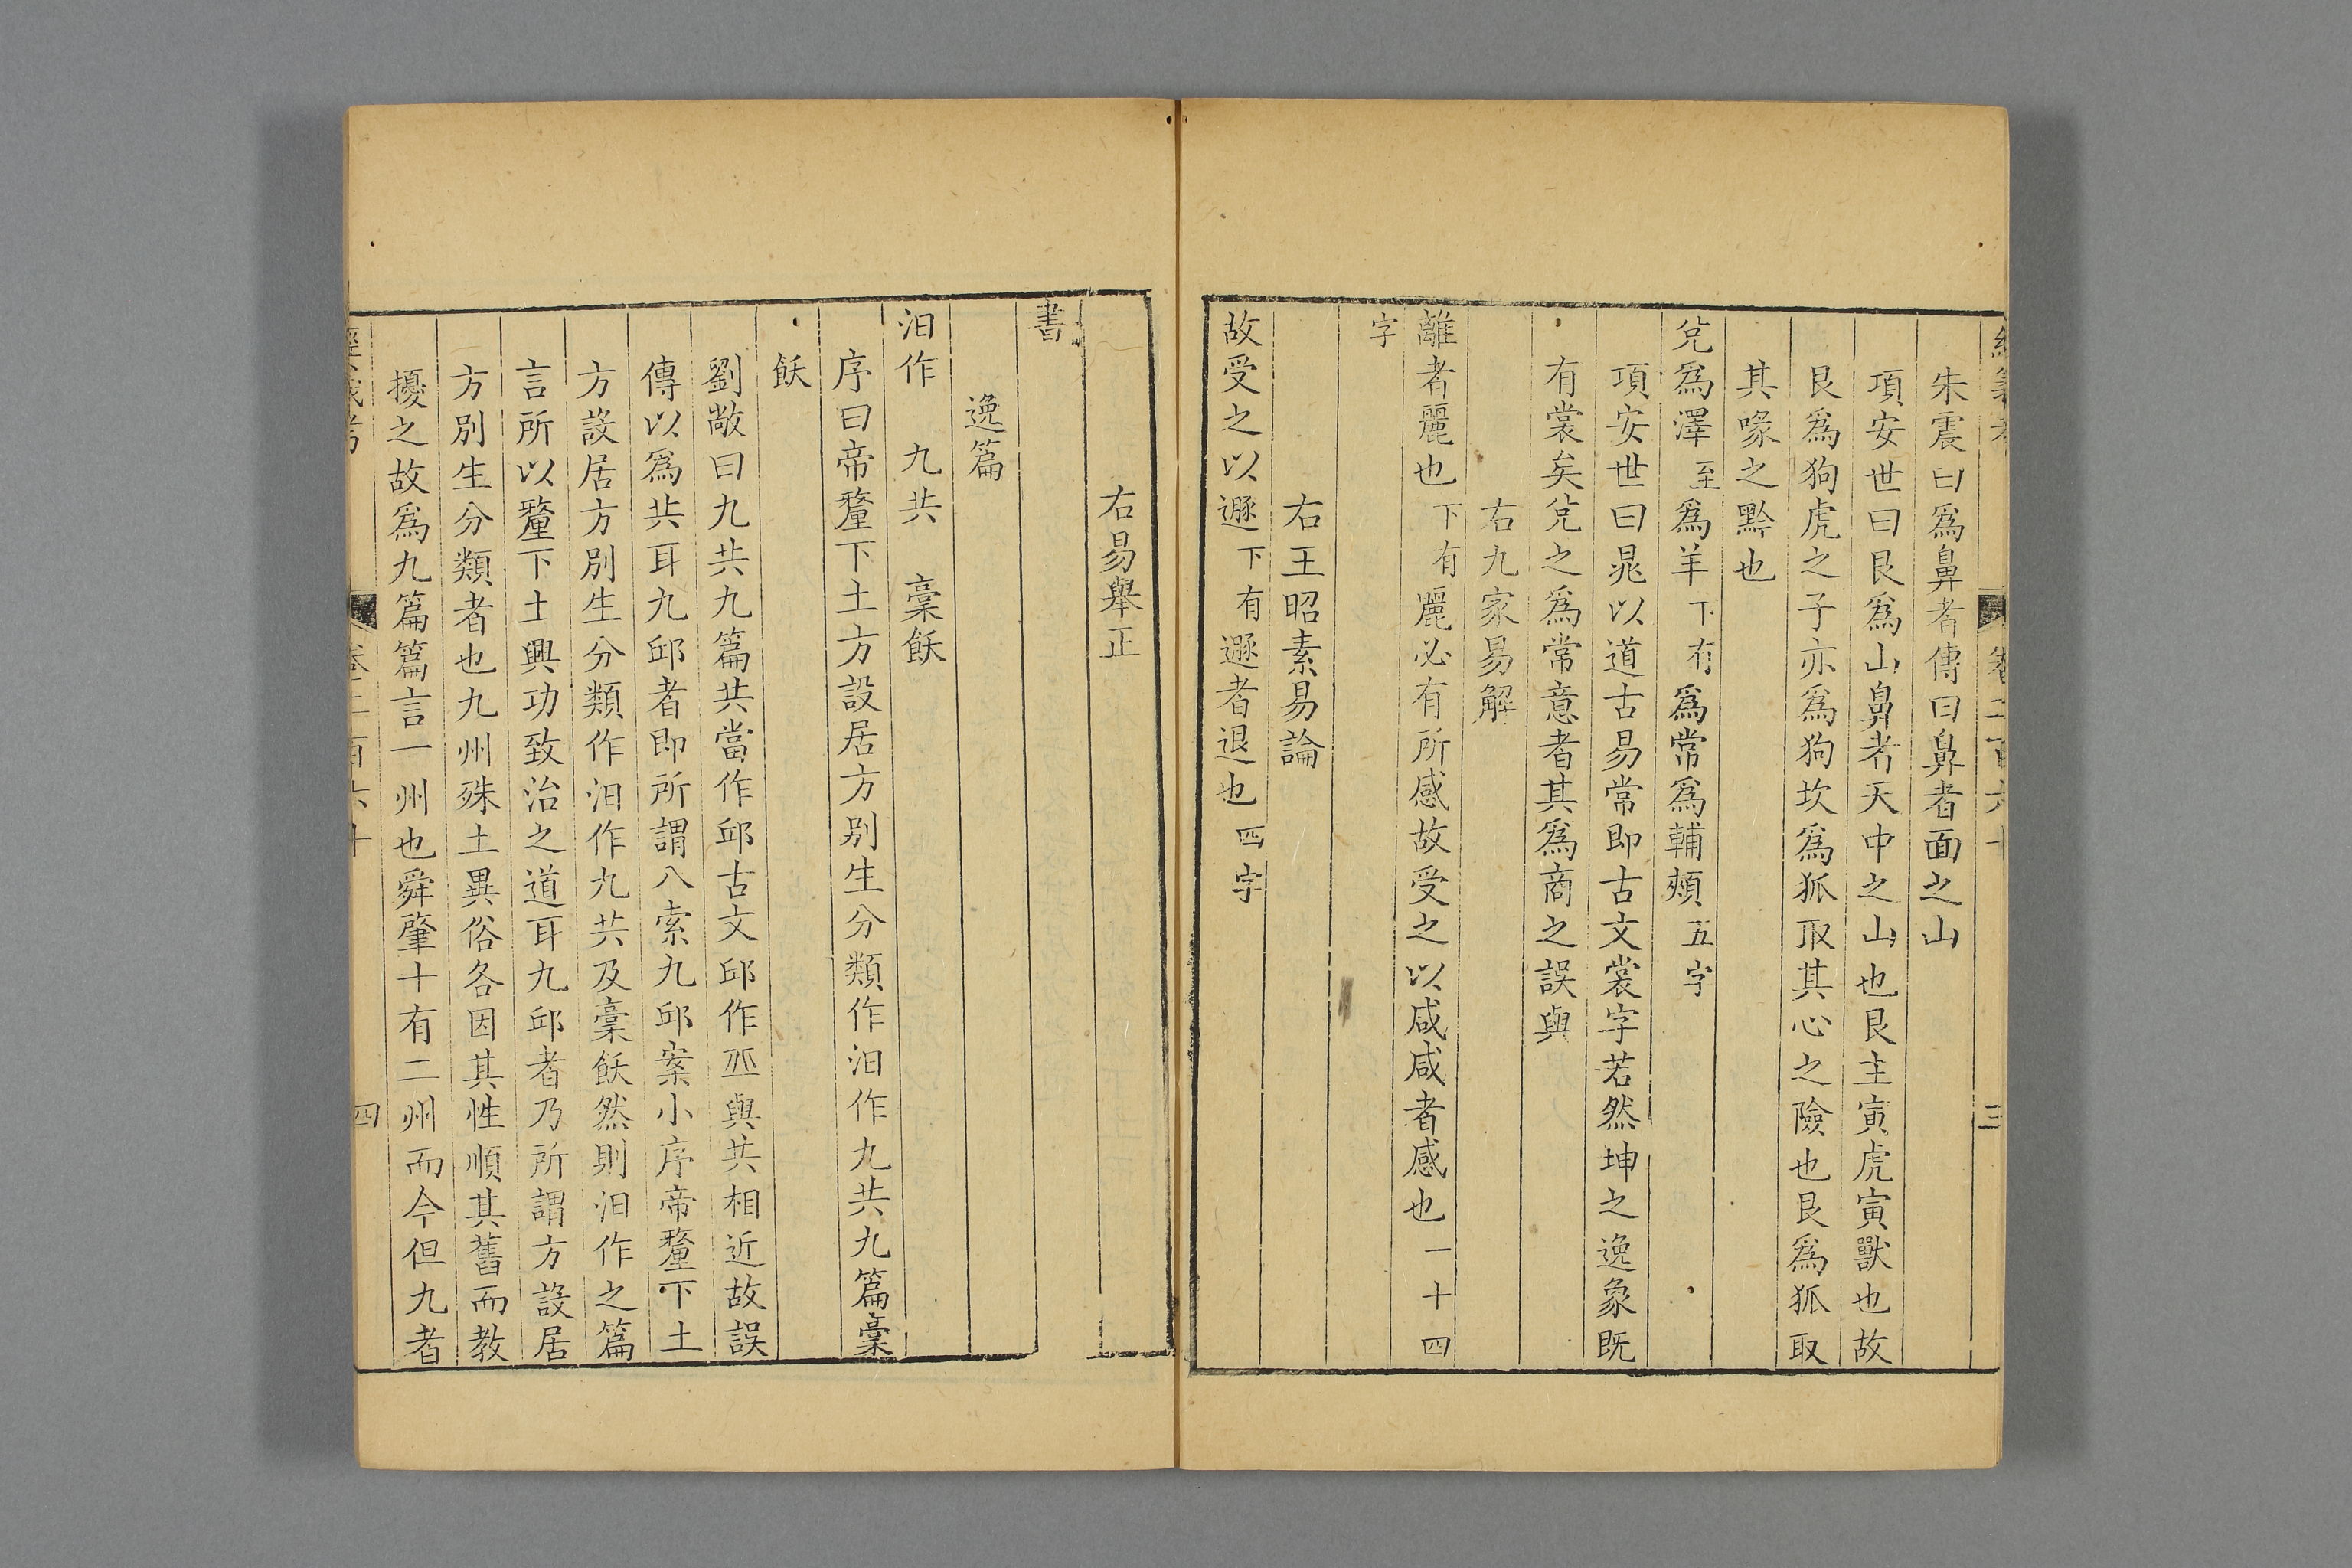 朱震曰爲鼻者傳曰鼻者面之山
項安世曰艮爲山鼻者天中之山也艮主寅虎寅獸也故
艮爲狗虎之子亦爲狗坎爲狐取其心之險也艮爲狐取
其喙之黔也
兌爲澤至爲羊下有爲常爲輔頰五字
項安世曰晁以道古易常即古文裳字若然坤之逸象既
有裳矣兌之爲常意者其爲商之誤與
右九家易解
離者麗也下有麗必有所感故受之以咸咸者感也一十四
字
右王昭素易論
故受之以遯下有遯者退也四字
右易舉正
書
逸篇
汨作 九共 稾飫
序曰帝釐下土方設居方別生分類作汨作九共九篇稾
飫
劉敞曰九共九篇共當作邱古文邱作丠與共相近故誤
傳以爲共耳九邱者即所謂八索九邱案小序帝釐下土
方設居方別生分類作汨作九共及稾飫然則汨作之篇
言所以釐下土興功致治之道耳九邱者乃所謂方設居
方別生分類者也九州殊土異俗各因其性順其舊而教
擾之故爲九篇篇言一州也舜肇十有二州而今但九者
四